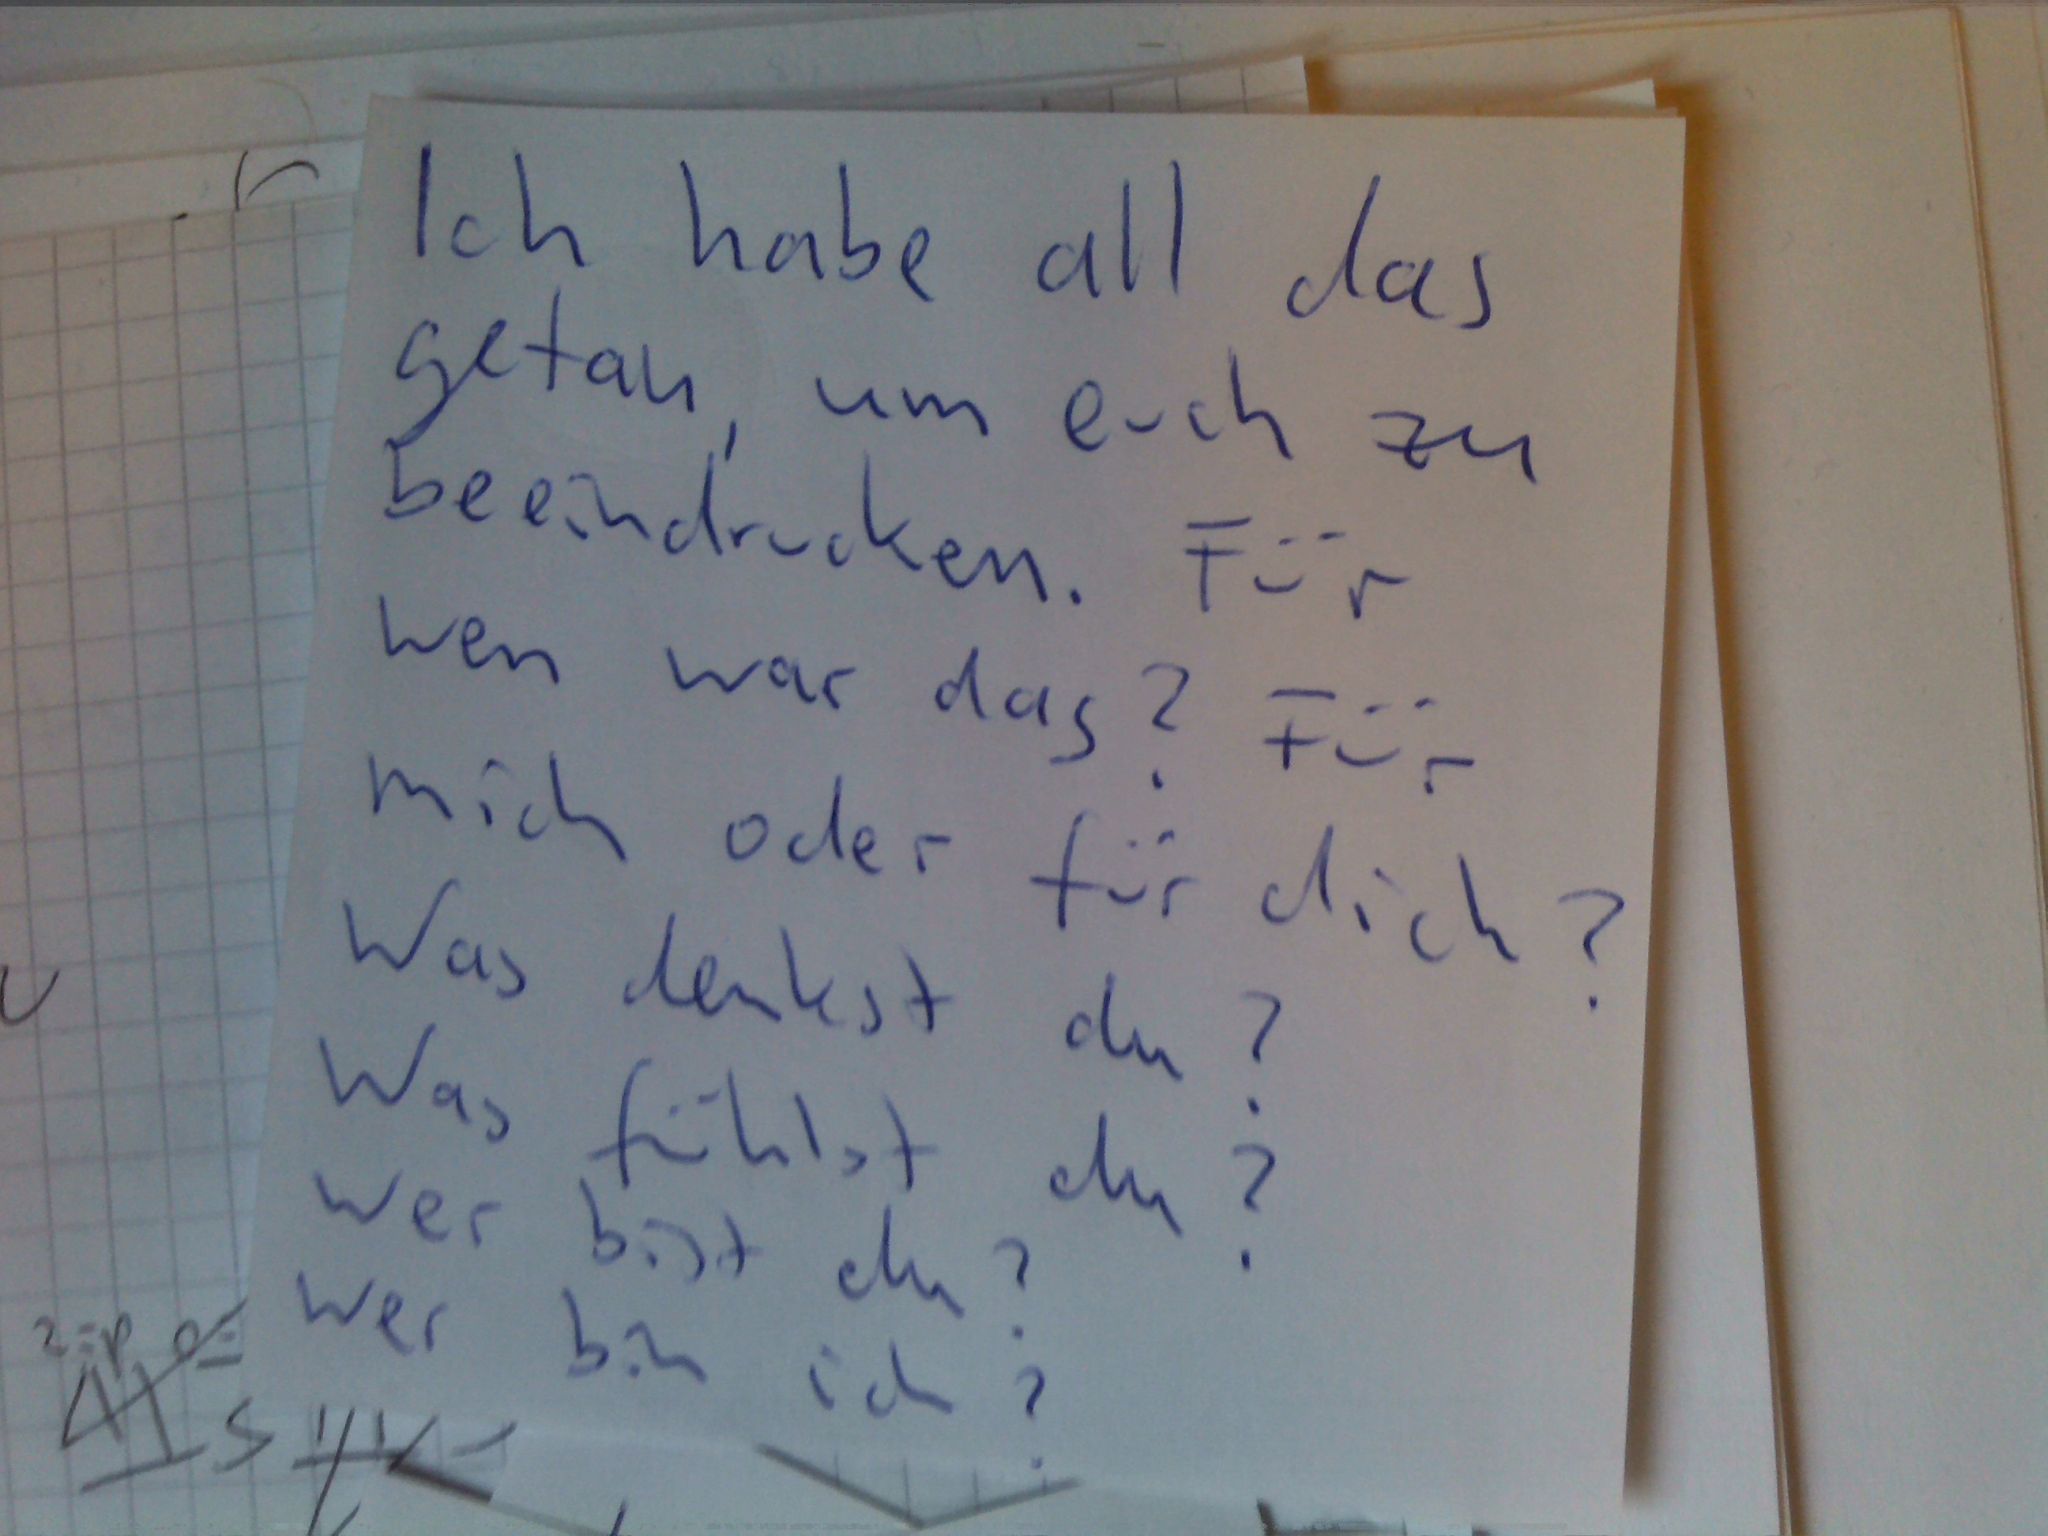 Ich habe all das
getan, um euch zu
beeindrucken. Für
wen war das? Für
mich oder für dich?
Was denkst du?
Was fühlst du?
Wer bist du?
Wer bin ich?